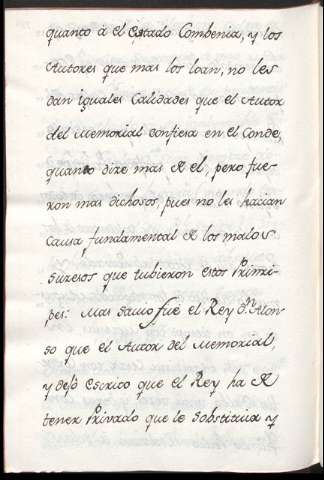 quanto á el Estado Combenia, y los
Autores que mas los loan, no les
dan iguales Calidades que el Autor
del Memorial confiesa en el Conde,
quando dixe mas de el, pero fue-
ron mas dichosos, pues no les hacian
causa fundamental de los malos
suzesos que tubieron estos Prinzi-
pes: Mas savio fué el Rey Dn. Alon-
so que el Autor del Memorial,
y dejó Escrito que el Rey ha de
tener Privado que le Substituia y